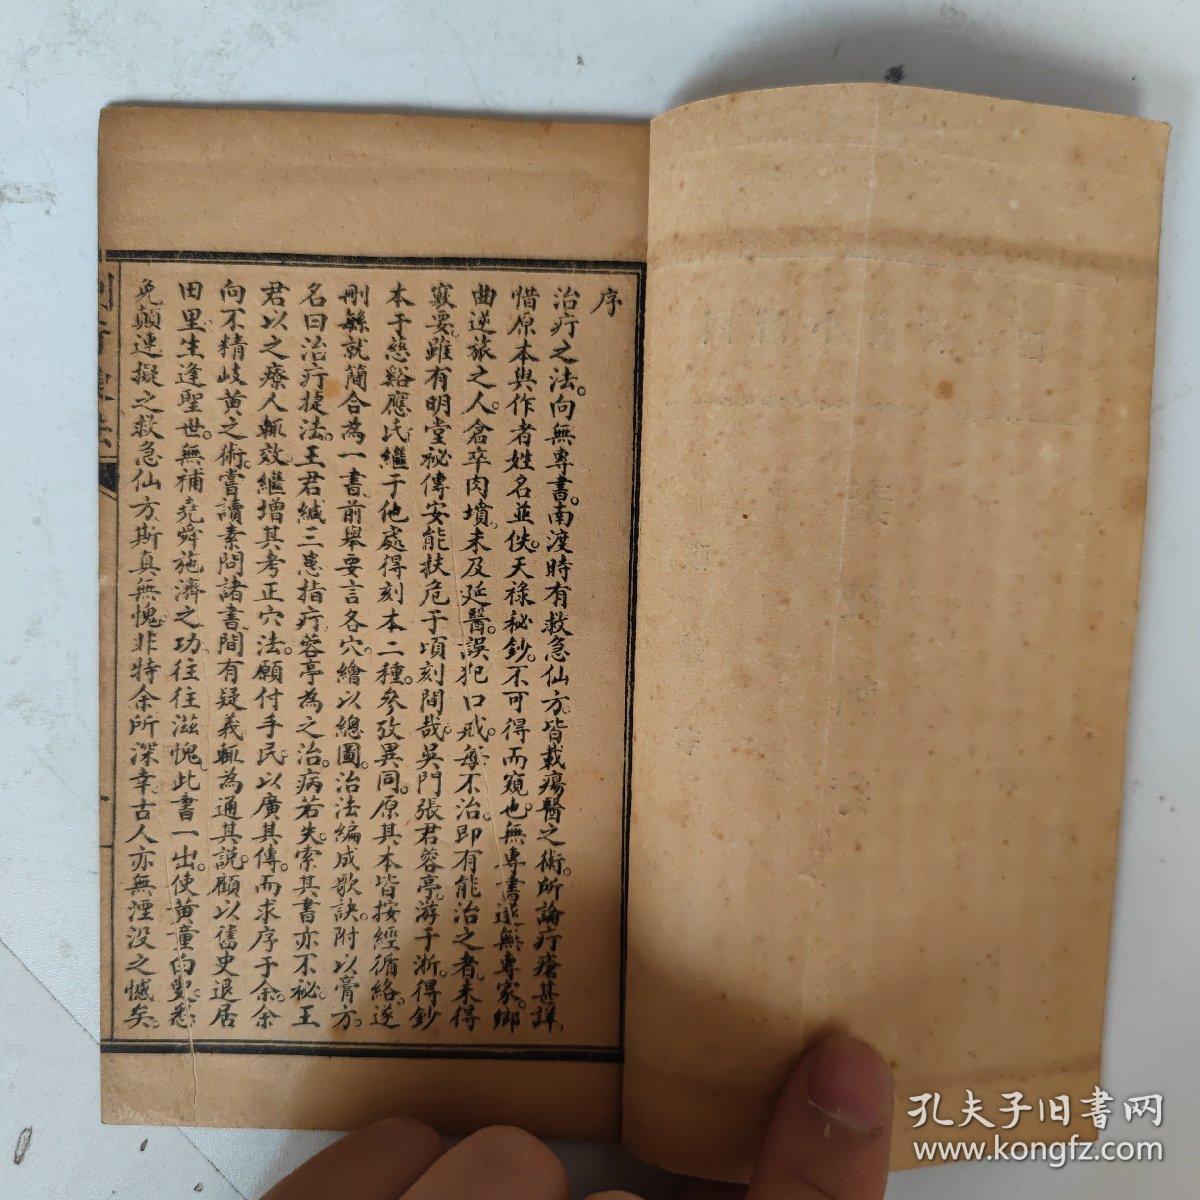 序
治疔之法。向無專書。南渡時有救急仙方。皆載瘍醫之術。所論疔瘡甚詳。
惜原本與作者姓名並佚。天祿秘鈔。不可得而窺也。無專書遂無專家。鄉
曲逆旅之人。倉卒肉墳。未及延醫。誤犯口戒。每不治。即有能治之者。未得
竅要。雖有明堂秘傳。安能扶危于頃刻間哉。吳門張君蓉亭。游于浙。得鈔
本于慈谿應氏。繼于他處得刻本二種。參攷異同。原其本皆按經循絡。遂
刪繇就簡。合為一書。前舉要言各穴。繪以總圖。治法編成歌訣。附以膏方。
名曰治疔捷法。王君緘三患指疔。蓉亭為之治。病若失。索其書亦不秘。王
君以之療人輒效。繼增其考正穴法。願付手民。以廣其傳。而求序于余。余
向不精岐黃之術。嘗讀素問諸書。間有疑義。輒為通其說。顧以舊史退居
田里。生逢聖世。無補堯舜施濟之功。往往滋愧。此書一出。使黃童白叟。悉
免顛連。擬之救急仙方。斯真無愧。非特余所深幸。古人亦無湮没之憾矣。
孔夫子旧书网
www.kongfz.com